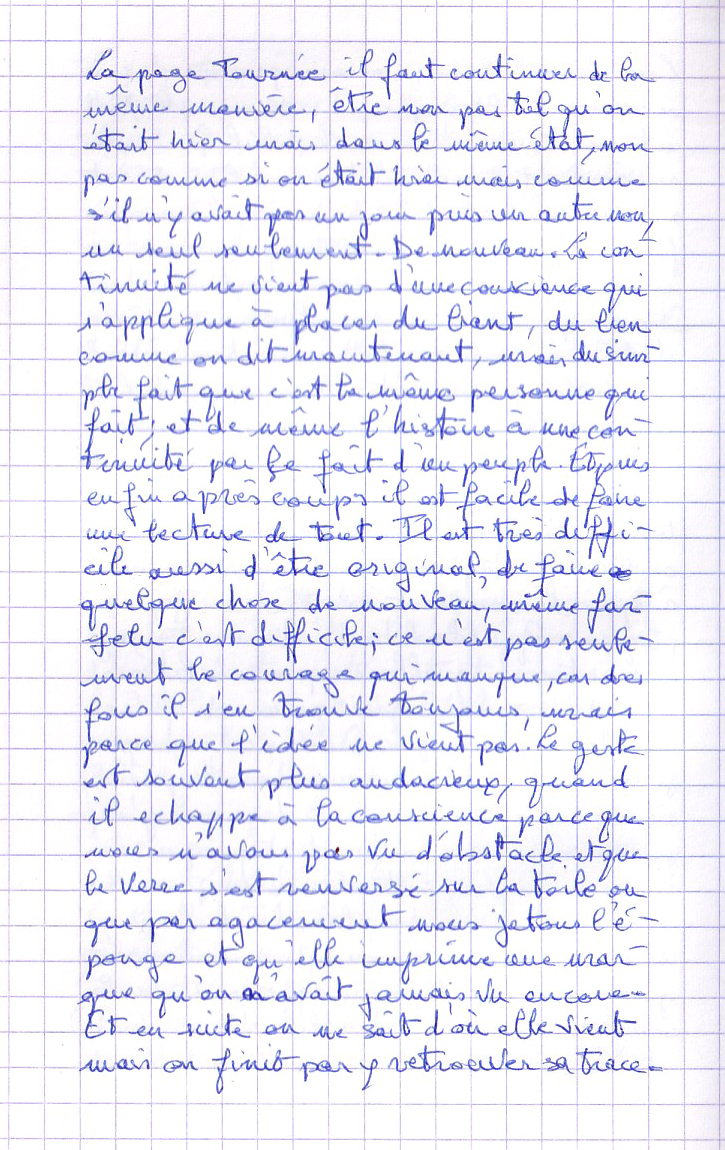 La page tournée il faut continuer de la
même manière, être non pas tel qu'on
était hier mais dans le même état, non
pas comme si on était hier mais comme
s'il n'y avait pas un jour puis un autre non,
un seul seulement. De nouveau. La con-
tinuité ne vient pas d'une conscience qui
s'applique à placer du liant, du lien
comme on dit maintenant, mais du sim-
ple fait que c'est la même personne qui
fait; et de même l'histoire à une con-
tinuité par le fait d'un peuple. Et puis
enfin après coups il est facile de faire
une lecture de tout. Il est très diffi-
cile aussi d'être original, de faire
quelque chose de nouveau, même far-
felu c'est difficile; ce n'est pas seule-
ment le courage qui manque, car des
fous il s'en trouve toujours, mais
parce que l'idée ne vient pas. Le geste
est souvent plus audacieux, quand
il echappe à la conscience parce que
nous n'avons pas vu d'obstacle et que
le verre s'est renversé sur la toile ou
que par agacement nous jetons l'é-
ponge et qu'elle imprime une mar-
que qu'on n'avait jamais vu encore.
Et en suite on ne sait d'où elle vient
mais on finit par y retrouver sa trace.